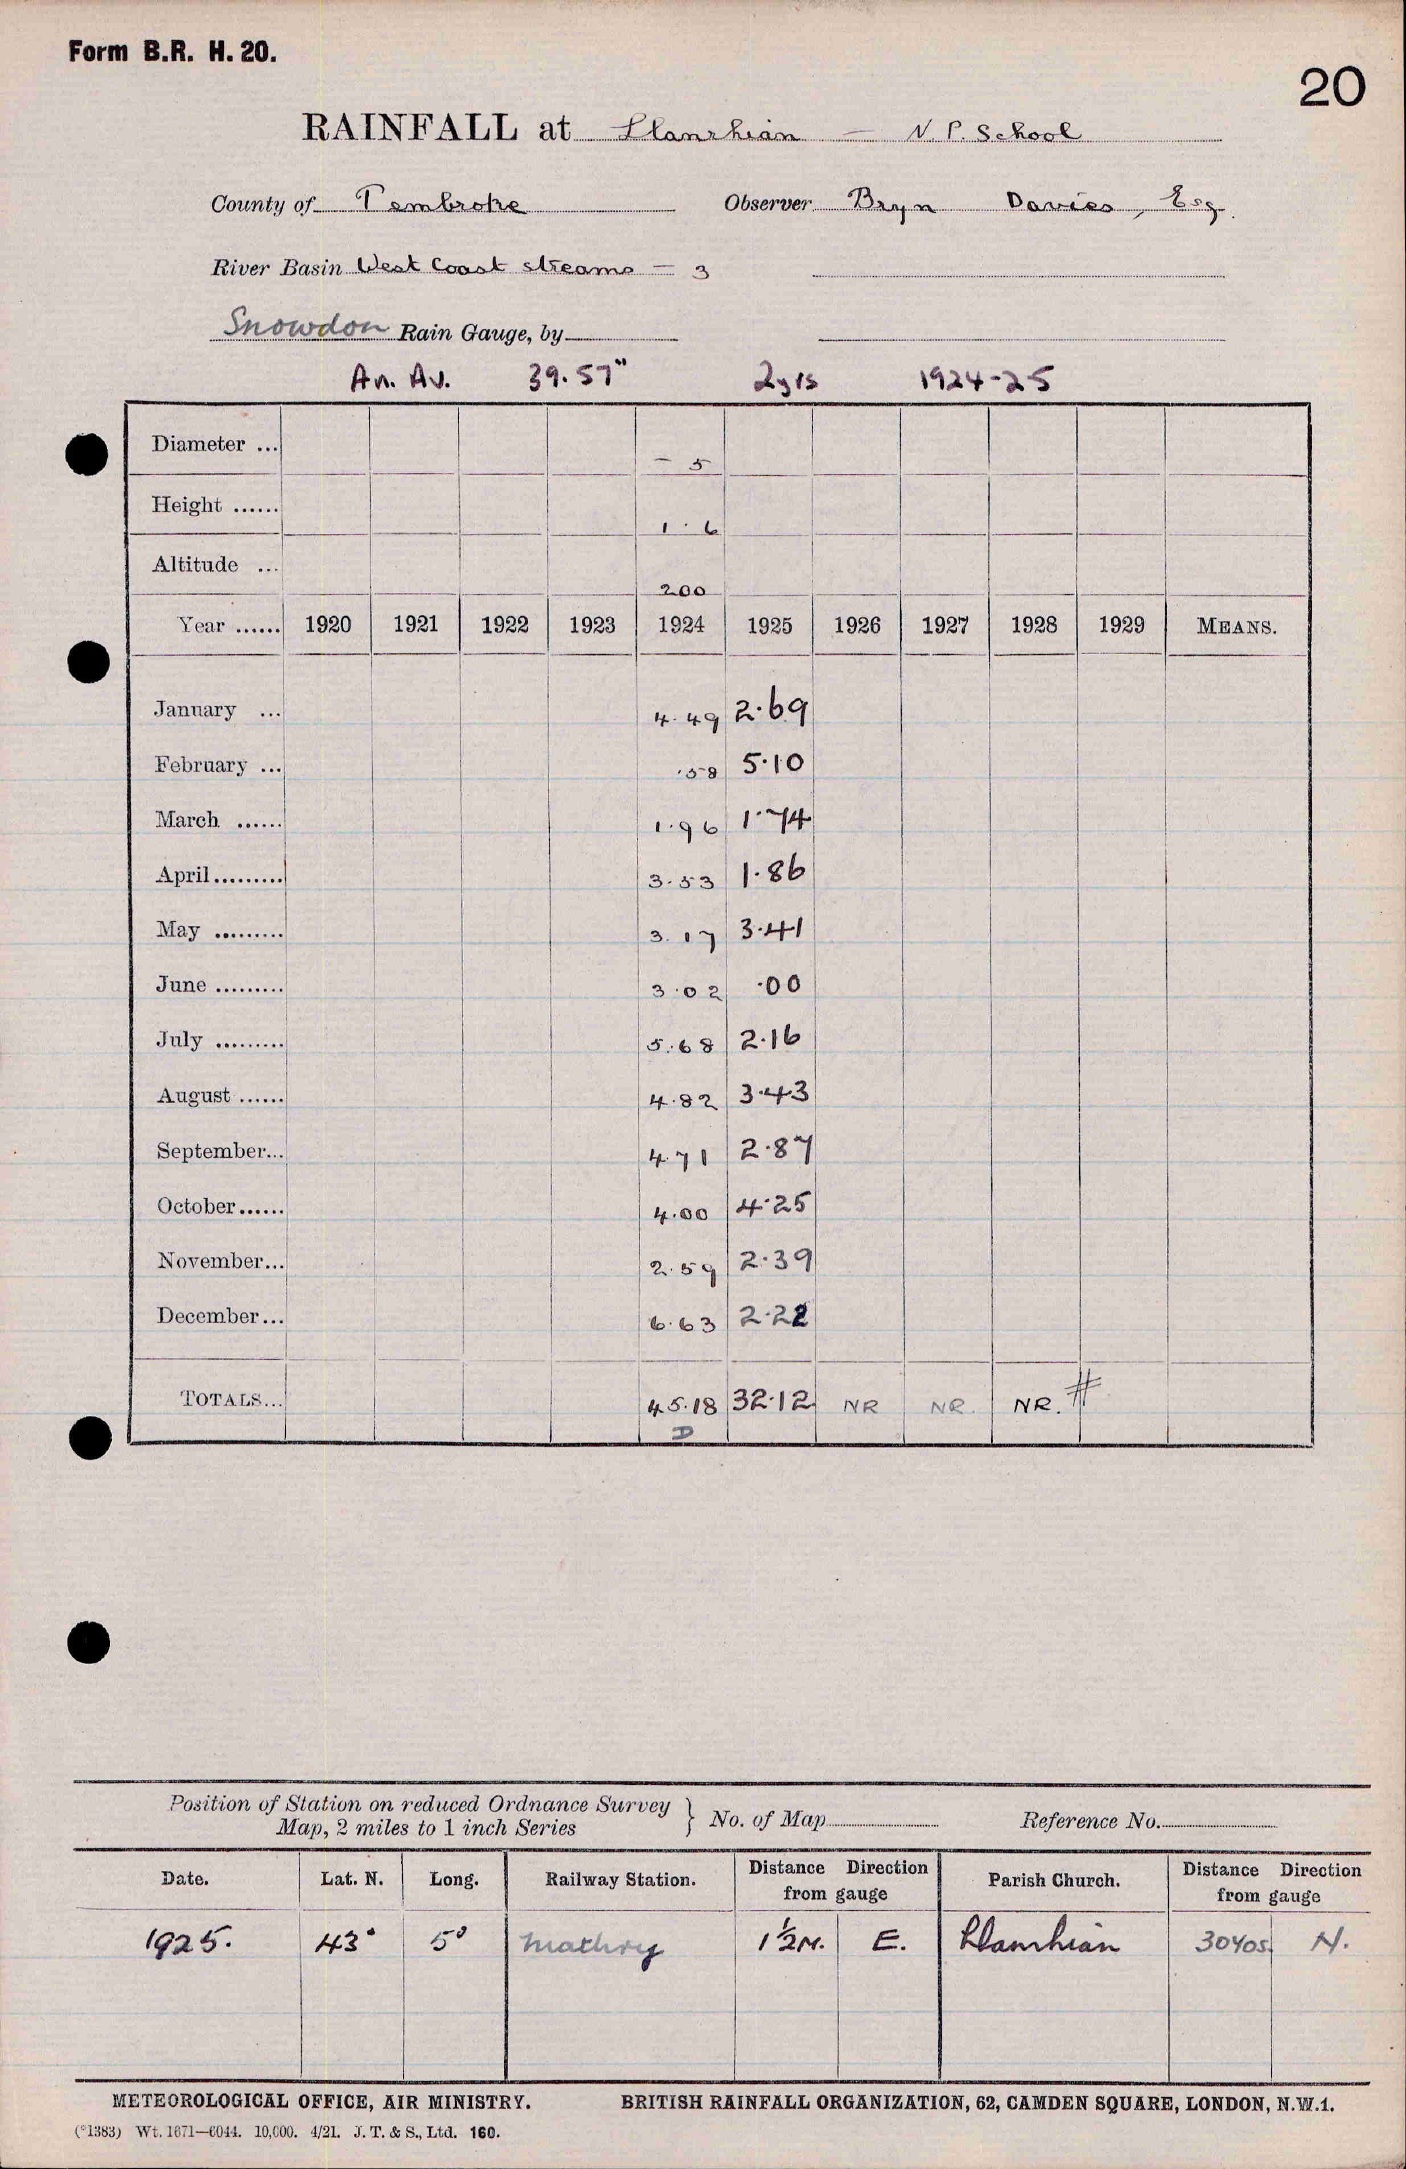 Form B.R. H. 20.
20
RAINFALL at Llanrhian — N.P. School
County of Pembroke Observer Bryn Davies, Esq.
River Basin West Coast streams — 3
Snowdon Rain Gauge, by
An. Av. 39.57" 2yrs 1924-25
Diameter ... – 5
Height ...... 1 · 6
Altitude ... 200
Year ...... 1920 1921 1922 1923 1924 1925 1926 1927 1928 1929 MEANS.
January ... 4.49 2.69
February ... .58 5.10
March ...... 1.96 1.74
April......... 3.53 1.86
May ......... 3.17 3.41
June ......... 3.02 .00
July ......... 5.68 2.16
August ...... 4.82 3.43
September... 4.71 2.87
October...... 4.00 4.25
November... 2.59 2.39
December... 6.63 2.22
TOTALS... 45.18 32.12 NR NR. NR. #
D
Position of Station on reduced Ordnance Survey
Map, 2 miles to 1 inch Series } No. of Map Reference No.
Date. Lat. N. Long. Railway Station. Distance Direction from gauge Parish Church. Distance Direction from gauge
1925. 43° 5° Mathry 1½M. E. Llanrhian 30YDS. N.
METEOROLOGICAL OFFICE, AIR MINISTRY. BRITISH RAINFALL ORGANIZATION, 62, CAMDEN SQUARE, LONDON, N.W.1.
(*1383) Wt. 1671—6044. 10,000. 4/21. J. T. & S., Ltd. 160.